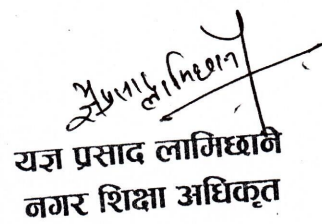 यज्ञ प्रसाद लामिछाने
नगर शिक्षा अधिकृत